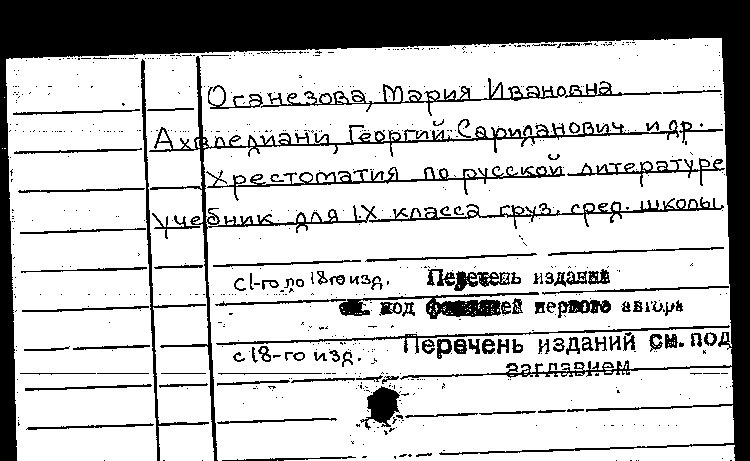 Оганезова, Мария Ивановна.
Ахвледиани, Георгий Сариданович и др.
Хрестоматия по русской литературе
учебник для IX класса груз. сред. школы.
с 1-го по 18-го изд. Перечень изданий
см. под фамилией первого автора
с 18-го изд. Перечень изданий см. под
заглавием